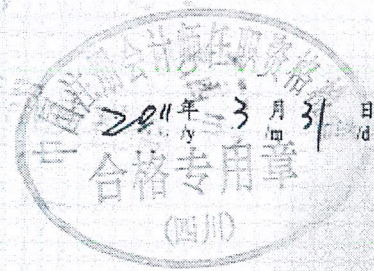 中国注册会计师任职资格
2011年 3月 31日
/y /m /d
合格专用章
(四川)